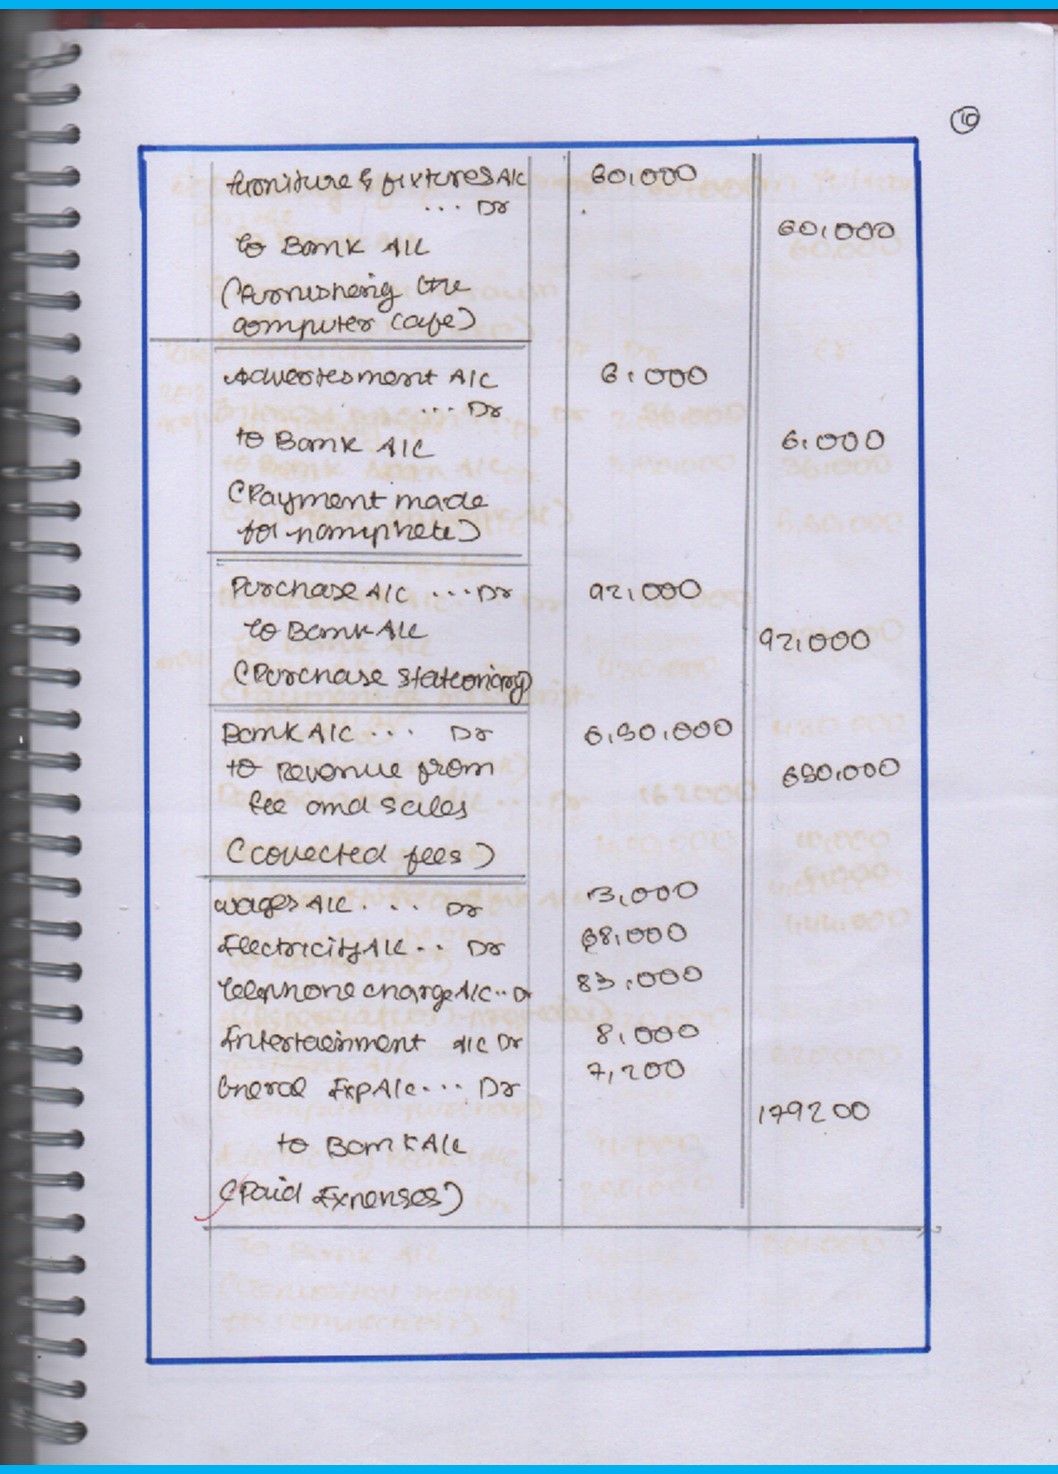 10
Furniture & fixtures A/c 60,000
... Dr
60,000
to Bank A/c
(Furnisheng the
computer cafe)
Advertesment A/c 6,000
... Dr
to Bank A/c 6,000
(Payment made
for pamphete)
Purchase A/c ... Dr 92,000
to Bank A/c 92,000
(Purchase stationary)
Bank A/c ... Dr 6,90,000
to Revenue from 690,000
fee and sales
(collected fees)
wages A/c ... Dr 13,000
Electricity A/c .. Dr 68,000
Telephone charge A/c .. Dr 83,000
Entertainment A/c Dr 8,000
Gneral Exp A/c ... Dr 7,200
179200
to Bank A/c
(Paid Expenses)